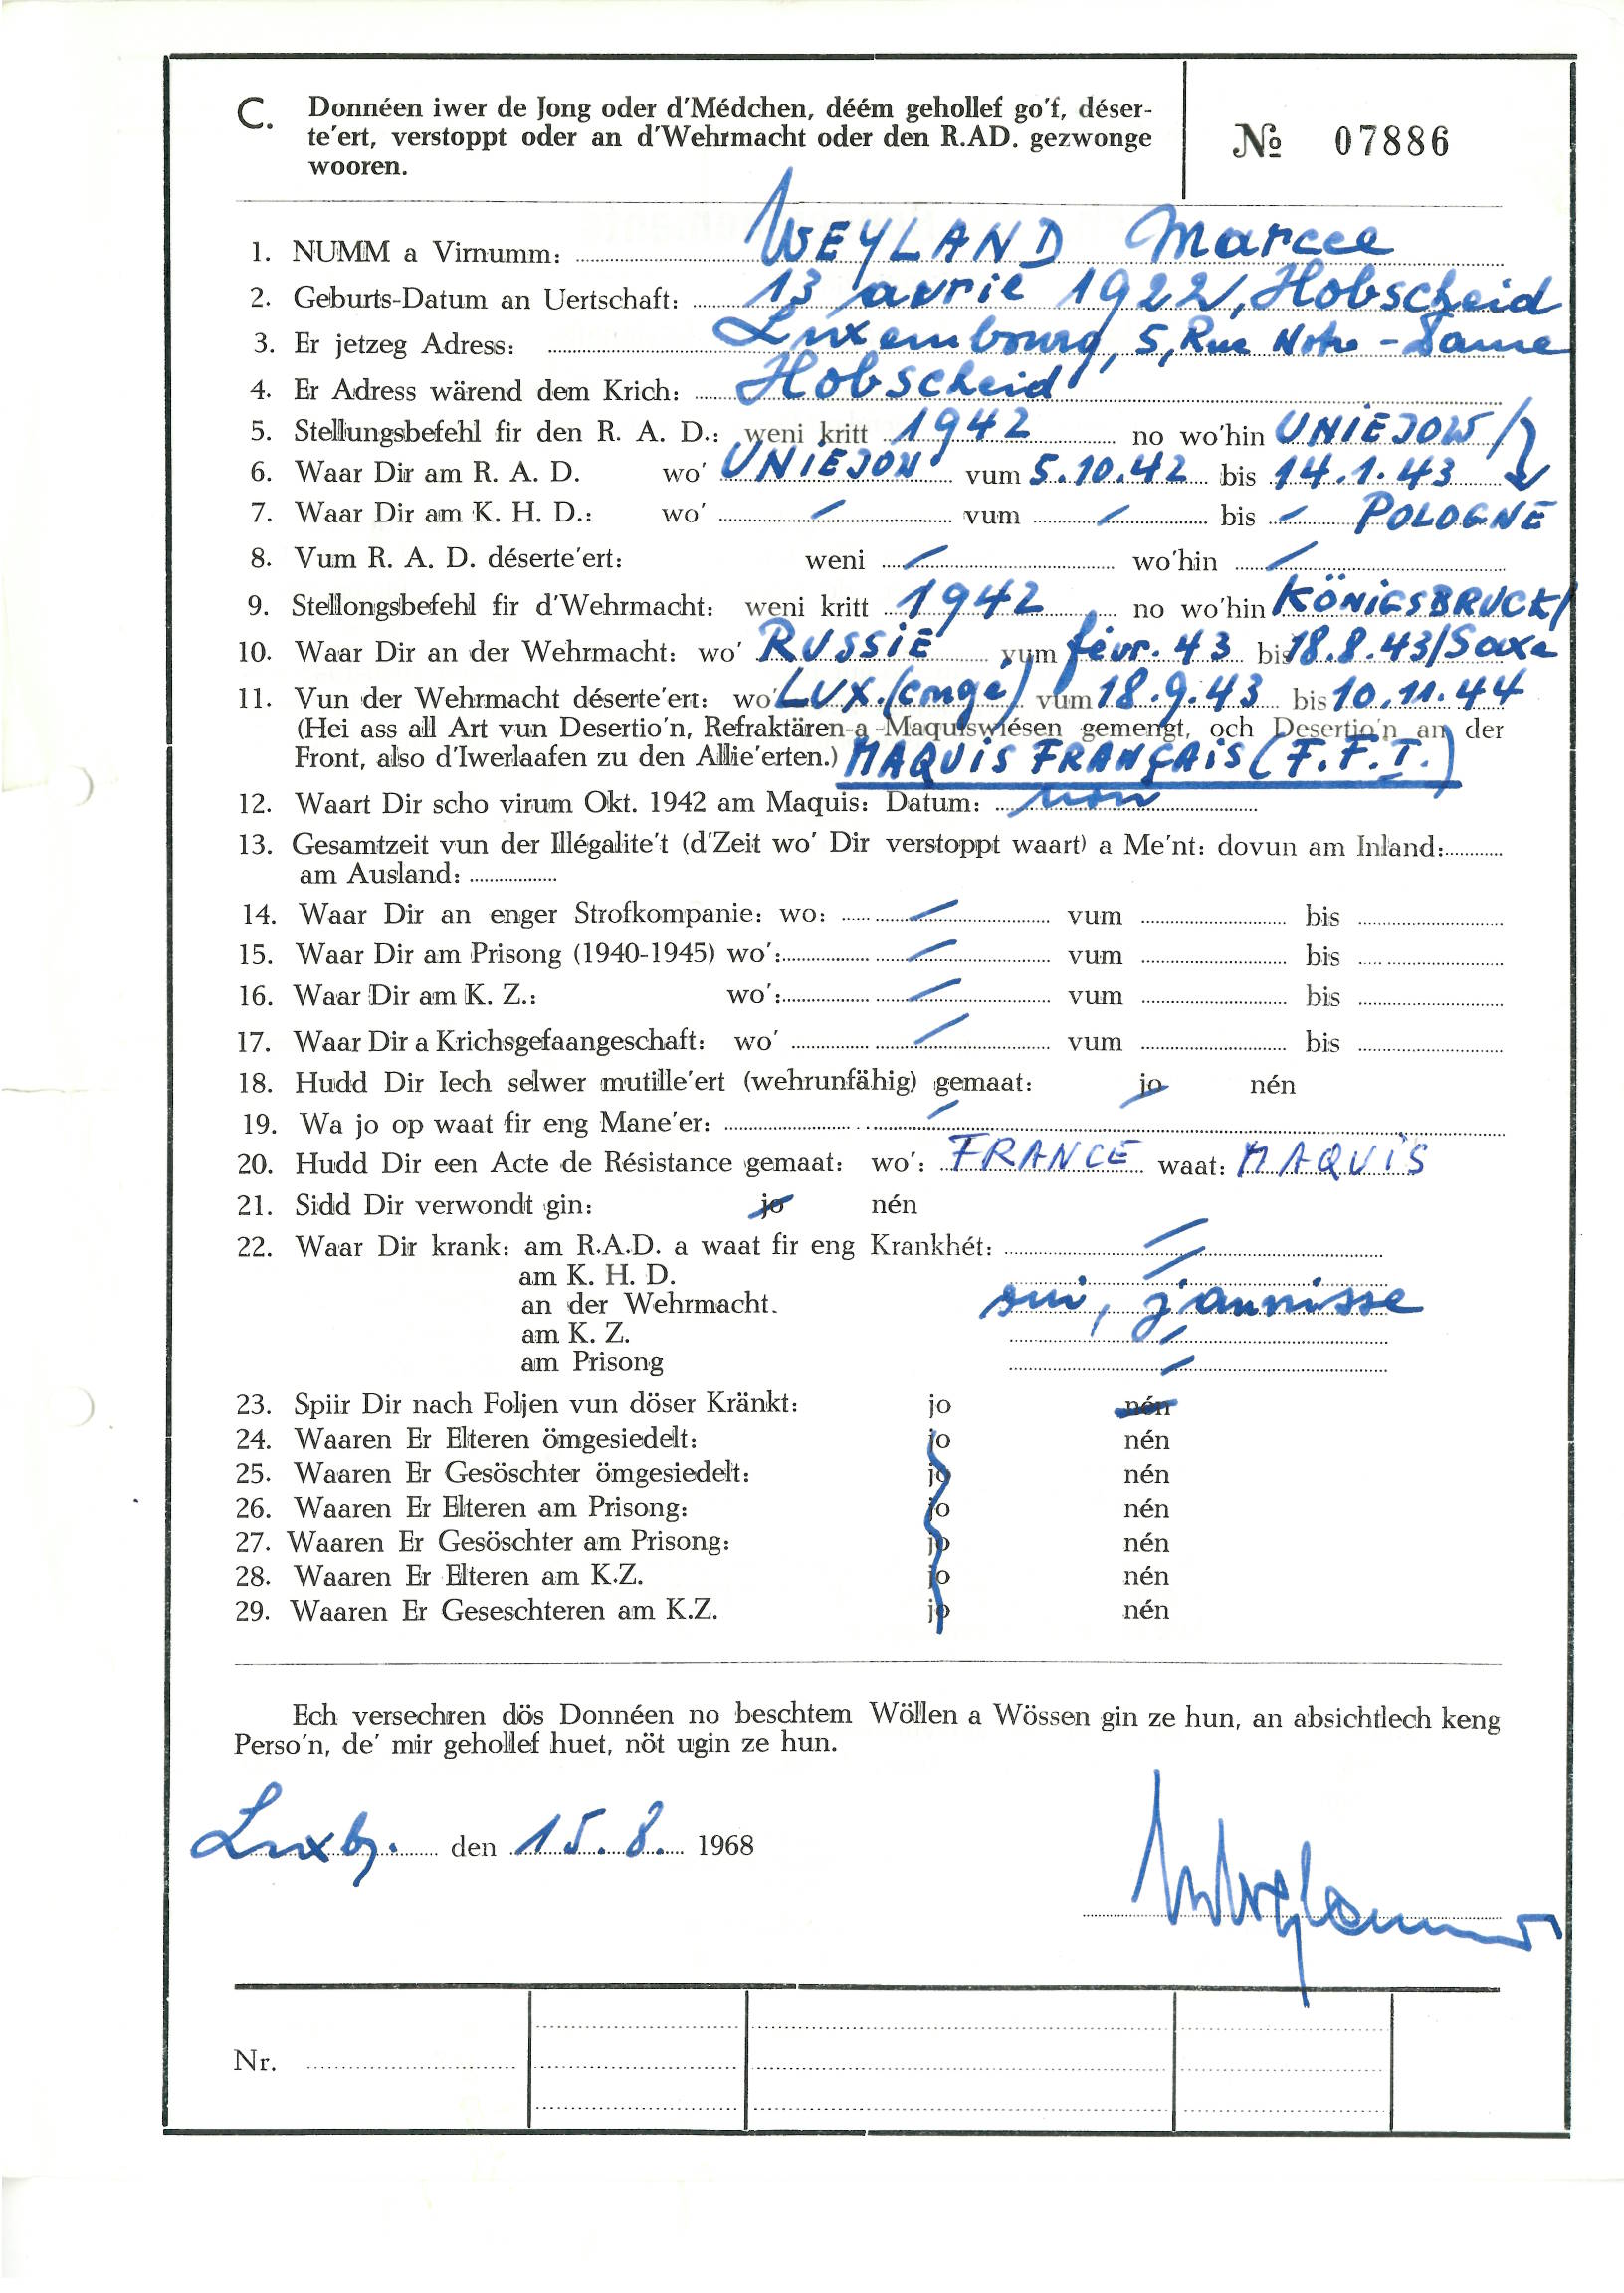 C. Donnéen iwer de Jong oder d'Médchen, déém gehollef go'f, déser-
te'ert, verstoppt oder an d'Wehrmacht oder den R.AD. gezwonge
wooren.
№ 07886
1. NUMM a Virnumm: WEYLAND Marcel
2. Geburts-Datum an Uertschaft: 13 avril 1922, Hobscheid
3. Er jetzeg Adress: Luxembourg, 5, Rue Notre-Dame
4. Er Adress wärend dem Krich: Hobscheid
5. Stellungsbefehl fir den R. A. D.: weni kritt 1942 no wo'hin UNIEJOW/
6. Waar Dir am R. A. D. wo' UNIEJOW vum 5.10.42 bis 14.1.43
7. Waar Dir am K. H. D.: wo' / vum / bis / POLOGNE
8. Vum R. A. D. déserte'ert: weni / wo'hin /
9. Stellongsbefehl fir d'Wehrmacht: weni kritt 1942 no wo'hin KÖNIGSBRUCK/
10. Waar Dir an der Wehrmacht: wo' RUSSIE vum févr. 43 bis 18.8.43 /Saxe
11. Vun der Wehrmacht déserte'ert: wo' LUX. (congé) vum 18.9.43 bis 10.11.44
(Hei ass all Art vun Desertio'n, Refraktären-a -Maquiswiésen gemengt, och Desertio'n an der
Front, also d'Iwerlaafen zu den Allie'erten.) MAQUIS FRANÇAIS (F.F.I.)
12. Waart Dir scho virum Okt. 1942 am Maquis: Datum: non
13. Gesamtzeit vun der Illégalite't (d'Zeit wo' Dir verstoppt waart) a Me'nt: dovun am Inland:
am Ausland:
14. Waar Dir an enger Strofkompanie: wo: / vum bis
15. Waar Dir am Prisong (1940-1945) wo': / vum bis
16. Waar Dir am K. Z.: wo': / vum bis
17. Waar Dir a Krichsgefaangeschaft: wo' / vum bis
18. Hudd Dir Iech selwer mutille'ert (wehrunfähig) gemaat: jo nén
19. Wa jo op waat fir eng Mane'er: /
20. Hudd Dir een Acte de Résistance gemaat: wo': FRANCE waat: MAQUIS
21. Sidd Dir verwondt gin: jo nén
22. Waar Dir krank: am R.A.D. a waat fir eng Krankhét: /
am K. H. D. /
an der Wehrmacht. oui, jaunisse
am K. Z. /
am Prisong /
23. Spiir Dir nach Foljen vun döser Kränkt: jo nén
24. Waaren Er Elteren ömgesiedelt: jo nén
25. Waaren Er Gesöschter ömgesiedelt: jo nén
26. Waaren Er Elteren am Prisong: jo nén
27. Waaren Er Gesöschter am Prisong: jo nén
28. Waaren Er Elteren am K.Z. jo nén
29. Waaren Er Geseschteren am K.Z. jo nén
Ech versechren dös Donnéen no beschtem Wöllen a Wössen gin ze hun, an absichtlech keng
Perso'n, de' mir gehollef huet, nöt ugin ze hun.
Luxbg. den 15.8. 1968
MWeyland
Nr.